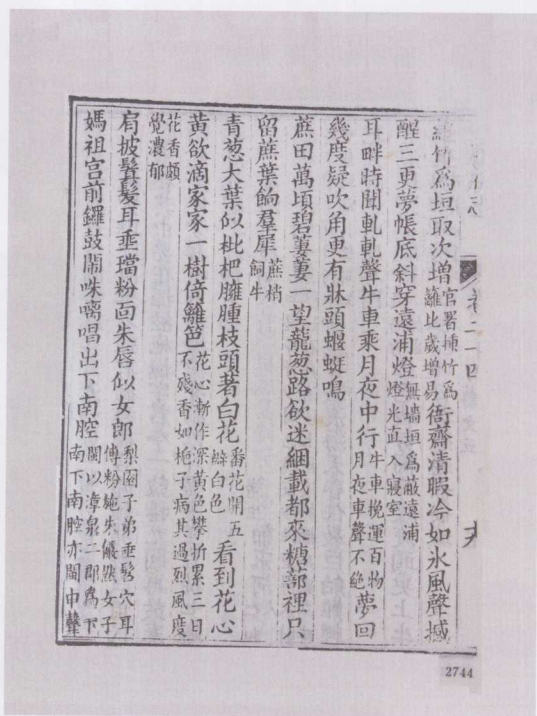 竹爲垣取次增官署揷竹爲籬比歲增易衙齋清暇冷如氷風聲撼
醒三更夢帳底斜穿遠浦燈無墻垣爲蔽遠浦燈光直入寢室
耳畔時聞軋軋聲牛車乘月夜中行牛車挽運百物月夜車聲不絶夢回
幾度疑吹角更有牀頭蝘蜓鳴
蔗田萬頃碧萋萋一望龍葱路欲迷綑載都來糖蔀裡只
留蔗葉餉羣犀蔗梢飼牛
青葱大葉似枇杷臃腫枝頭著白花番花開五瓣白色看到花心
黄欲滴家家一樹倚籬笆花心漸作深黄色攀折累三日不殘香如梔子病其過烈風度
花香頗覺濃郁
肩披鬒髮耳垂璫粉面朱唇似女郎梨園子弟垂髫穴耳傅粉施朱儼然女子
媽祖宫前鑼鼓閙咮𠺕唱出下南腔閩以漳泉二郡爲下南下南腔亦閩中聲
卷二十四
2744